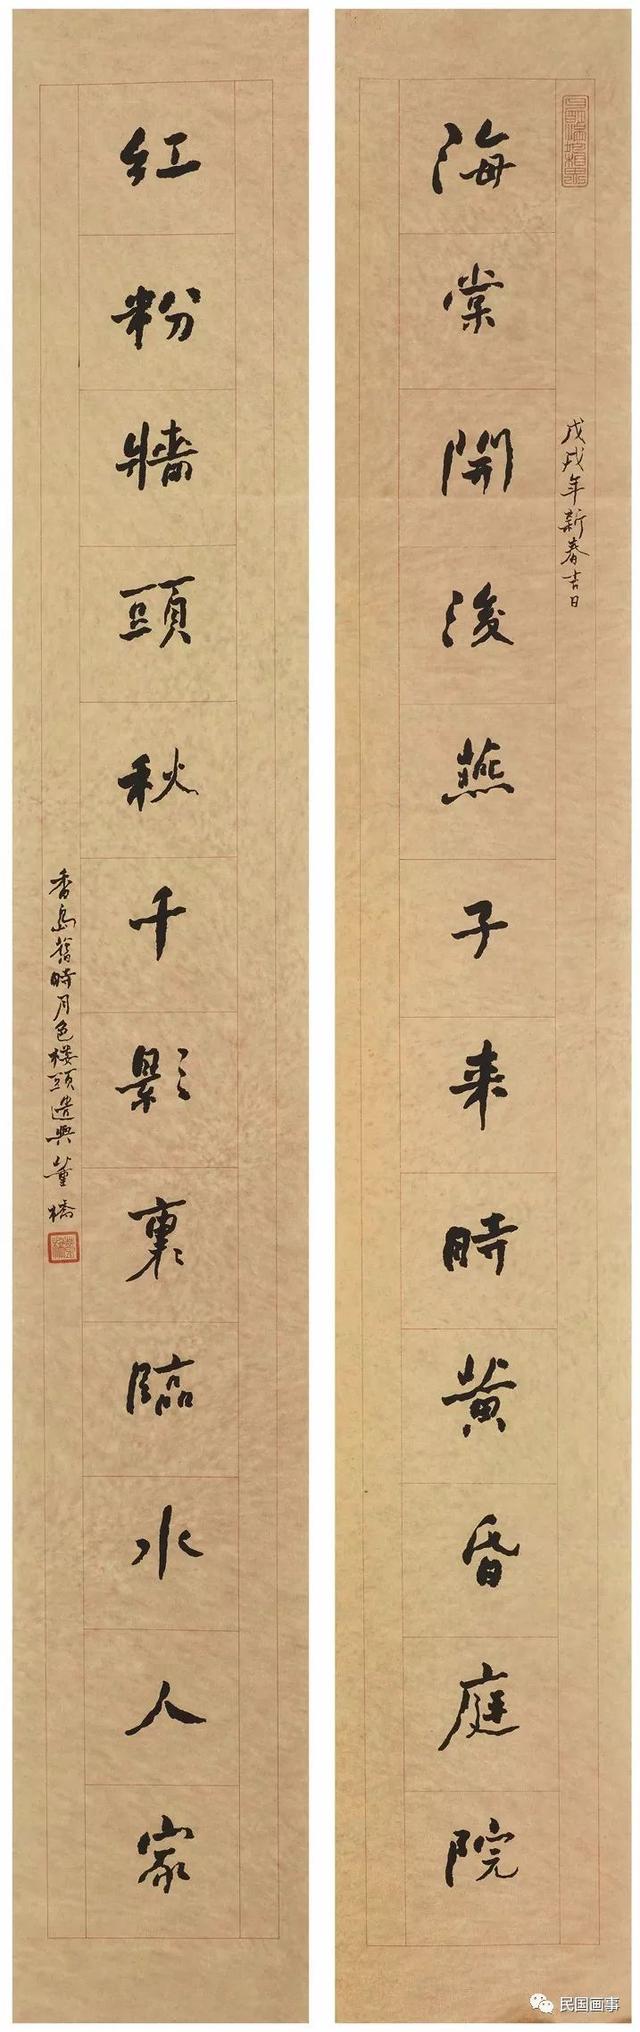 海棠開後燕子来時黄昏庭院
戊戌年新春吉日
红粉牆頭秋千影裏臨水人家
香島舊時月色楼頭遣興董橋
民国画事